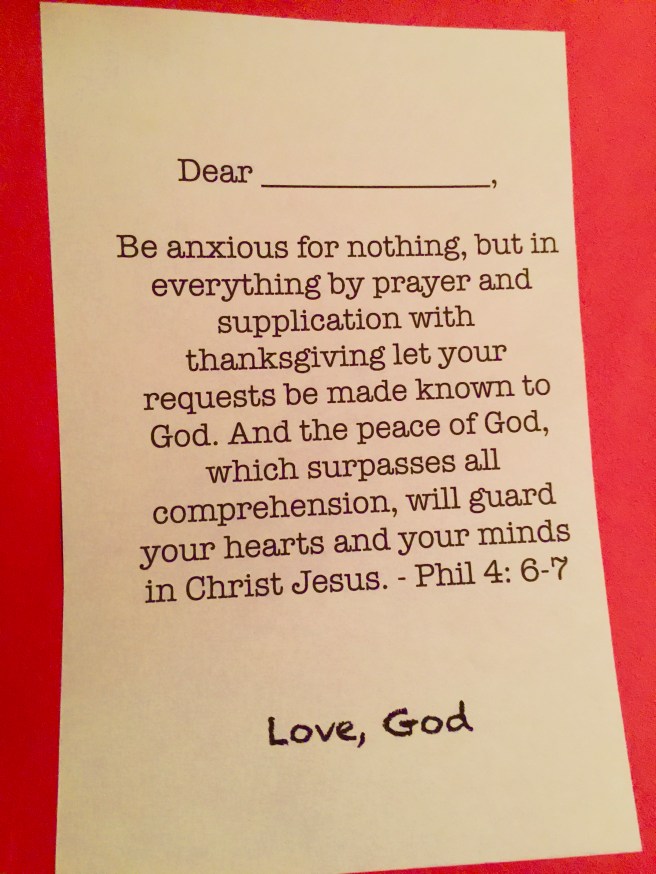 Dear ______________,
Be anxious for nothing, but in
everything by prayer and
supplication with
thanksgiving let your
requests be made known to
God. And the peace of God,
which surpasses all
comprehension, will guard
your hearts and your minds
in Christ Jesus. - Phil 4: 6-7
Love, God